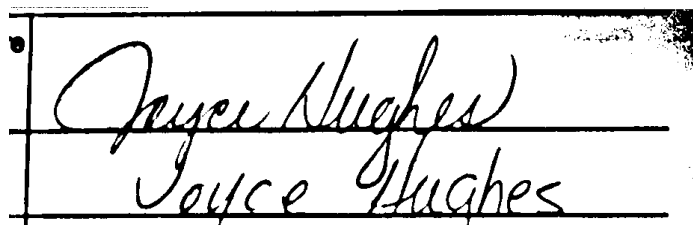 Joyce Hughes
Joyce Hughes